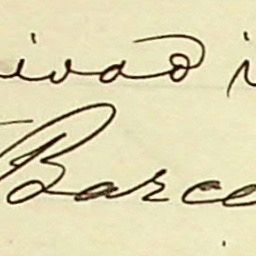 ivad i
Barce